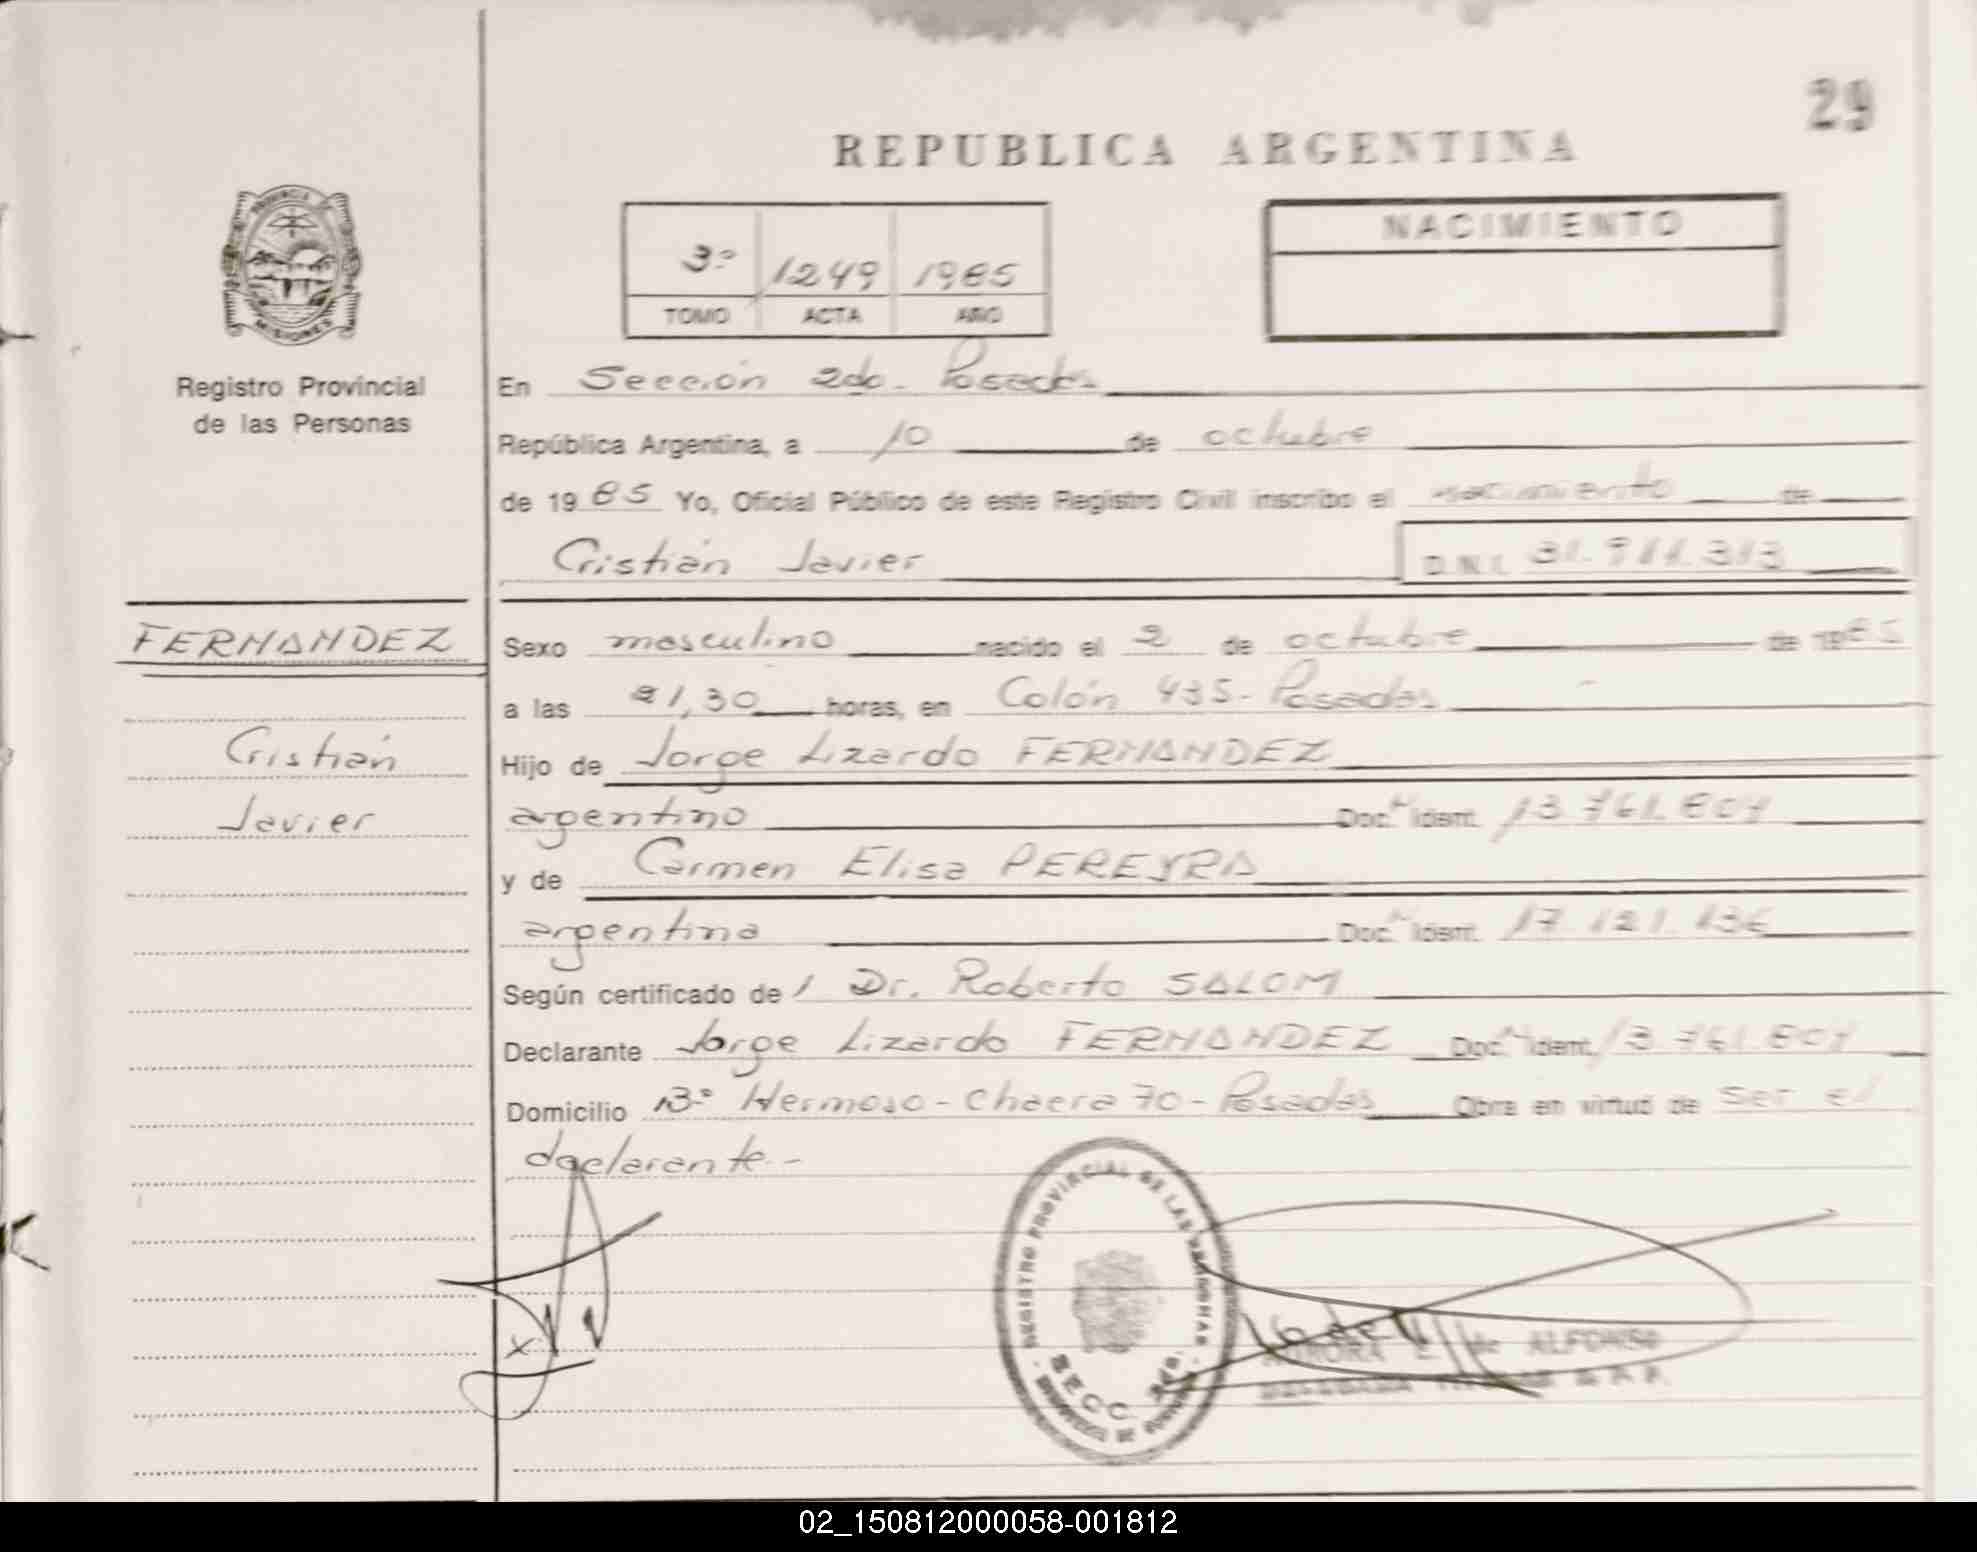 29
REPUBLICA ARGENTINA
PROVINCIA
MISIONES
3º 1249 1985
TOMO ACTA AÑO
NACIMIENTO
Registro Provincial
de las Personas
En Sección 2da. Posadas
República Argentina, a 10 de octubre
de 1985 Yo, Oficial Público de este Registro Civil inscribo el nacimiento de
Cristián Javier D.N.I. 31.911.313
FERNANDEZ
Cristián
Javier
Sexo masculino nacido el 2 de octubre de 1985
a las 21,30 horas, en Colón 435- Posadas
Hijo de Jorge Lizardo FERNANDEZ
argentino Doc. Ident. 13.761.804
y de Carmen Elisa PEREYRA
argentina Doc. Ident. 17.121.136
Según certificado de / Dr. Roberto SALOM
Declarante Jorge Lizardo FERNANDEZ Doc. Ident. 13.761.804
Domicilio Bº Hermoso - Chacra 70 - Posadas Obra en virtud de ser el
declarante.-
REGISTRO PROVINCIAL DE LAS PERSONAS
SECC. 2da.
AURORA E. de ALFONSO
DELEGADA TITULAR R. P. P.
02_150812000058-001812